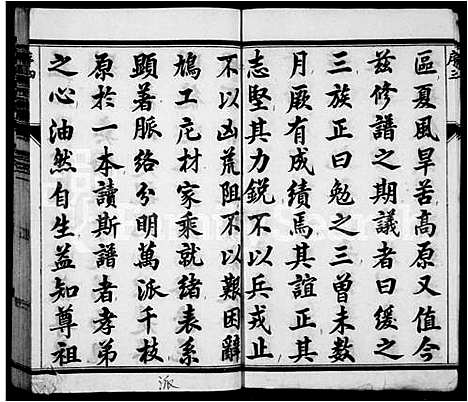 區夏風旱苦高原又值今
茲修譜之期議者曰緩之
三族正曰勉之三曾未數
月厥有成績焉其誼正其
志堅其力銳不以兵戎止
不以凶荒阻不以艱困辭
鳩工庀材家乘就緒表系
顯著脈絡分明萬派千枝
原於一本讀斯譜者孝弟
之心油然自生益知尊祖
派